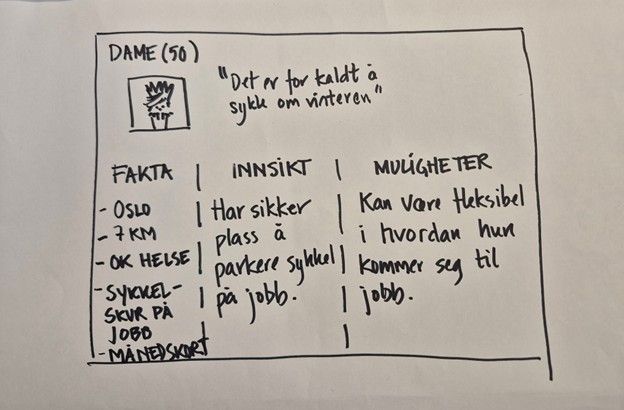 DAME (50)
"Det er for kaldt å
sykle om vinteren"
FAKTA | INNSIKT | MULIGHETER
- OSLO
- 7 KM
- OK HELSE
- SYKKEL-
SKUR PÅ
JOBB
- MÅNEDSKORT
Har sikker
plass å
parkere sykkel
på jobb.
Kan være fleksibel
i hvordan hun
kommer seg til
jobb.